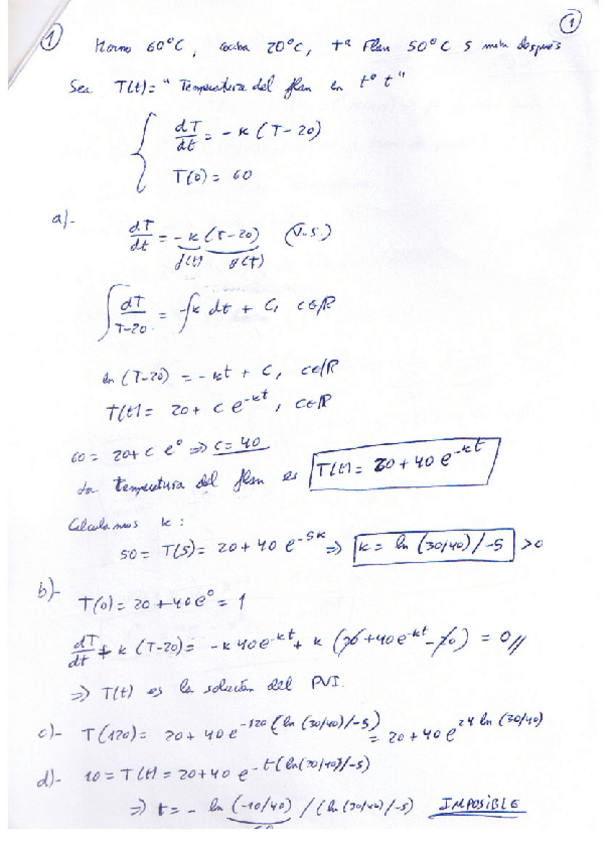 1
1
Horno 60°C, cocina 20°C, tª Flan 50°C 5 min después
Sea T(t) = "Temperatura del flan en tº t"
dT/dt = -k (T-20)
T(0) = 60
a)- dT/dt = -k (T-20) (V.S.)
f(t) g(T)
∫ dT/T-20 = -∫k dt + C, c∈ℝ
ln (T-20) = -kt + C, c∈ℝ
T(t) = 20 + c e^-kt, c∈ℝ
60 = 20 + c e^0 ⇒ c = 40
La temperatura del flan es T(t) = 20 + 40 e^-kt
Calculamos k:
50 = T(5) = 20 + 40 e^-5k ⇒ k = ln (30/40) / -5 > 0
b)- T(0) = 20 + 40 e^0 = 1
dT/dt + k (T-20) = -k 40 e^-kt + k (20 + 40 e^-kt - 20) = 0 //
⇒ T(t) es la solución del PVI.
c)- T(120) = 20 + 40 e^-120 (ln (30/40) / -5) = 20 + 40 e^24 ln (30/40)
d)- 10 = T(t) = 20 + 40 e^-t (ln (30/40) / -5)
⇒ t = - ln (-10/40) / (ln (30/40) / -5) IMPOSIBLE